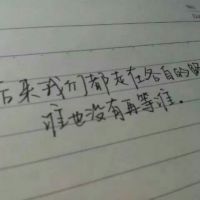 后来我们都走在各自的路
谁也没有再等谁.